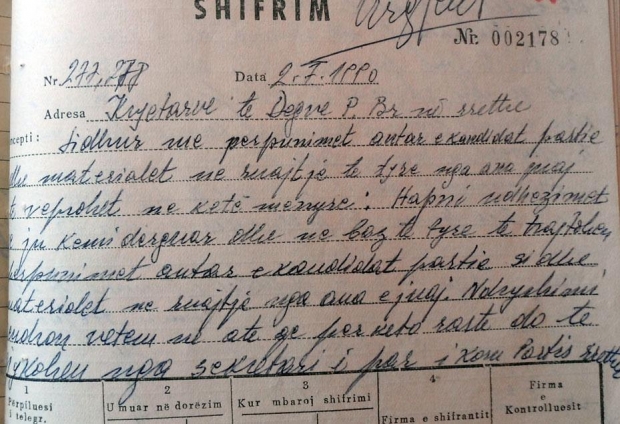 SHIFRIM
Urgjent
Nr. 002178
Nr. 277, 278 Data 2.7.1990
Adresa Kryetarve te Degve P. Br në rrethe
cepti: Lidhur me perpunimet antar e kandidat partie
dhe materialet ne ruajtje te tyre nga ana juaj
te veprohet ne kete menyre: Hapni udhezimet
e ju kemi derguar dhe ne baz te tyre te trajtohen
perpunimet antar e kandidat partie si dhe
materialet ne ruajtje nga ana e juaj Ndryshimi
qendron vetem ne ate qe per keto raste do te
nga sekretari i par i Kom Partis rrethit
1 2 3 4 Firma
Perpiluesi Umuar në dorëzim Kur mbaroj shifrimi Firma e shifrantit e
i telegr. Kontrolluesit